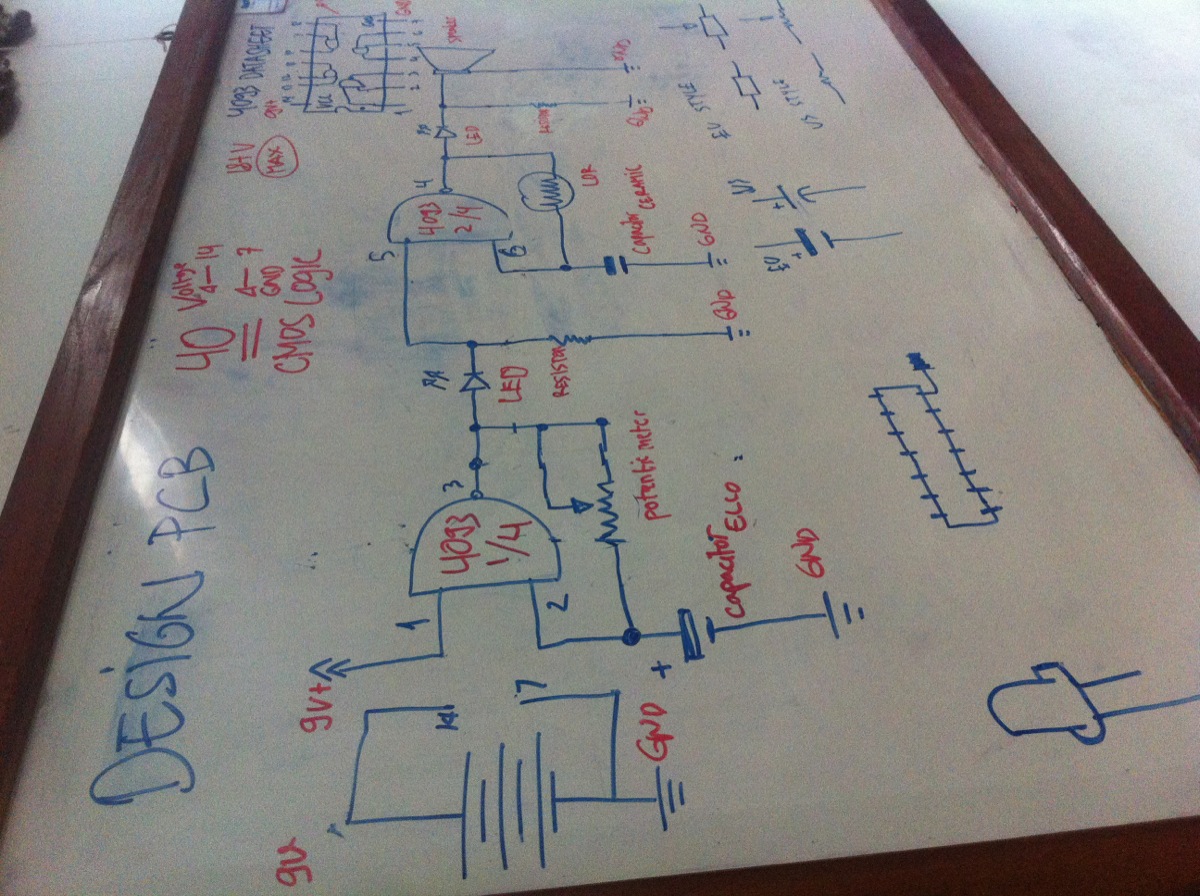 DESIGN PCB
40
Voltage
4—14
4—7
GND
CMOS LOGIC
18+V
MAX
4093 DATASHEET
9V+
VCC
GND
9V
14
7
GND
9V+
1
2
3
4093
1/4
LED
potentiometer
+
capacitor
ELCO
GND
RESISTOR
GND
5
6
4
4093
2/4
LED
LDR
capacitor
CERAMIC
GND
GND
GND
EU STYLE
US STYLE
US
+
EU
+